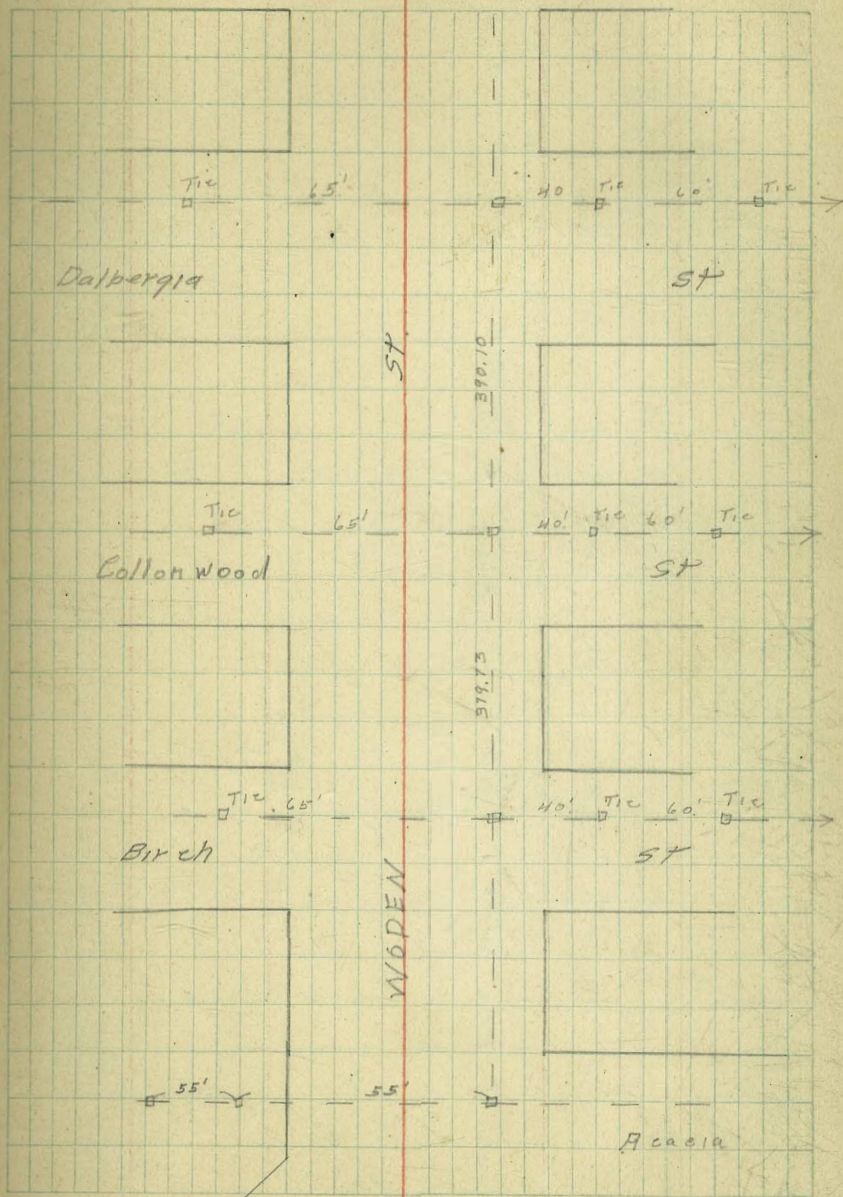 Tie 65' 40 Tie 60' Tie
Dalbergia St
St
390.10
Tie 65' 40' Tie 60' Tie
Collonwood St
379.73
Tie 65' 40' Tie 60' Tie
Birch St
WODEN
55' 55'
Acacia